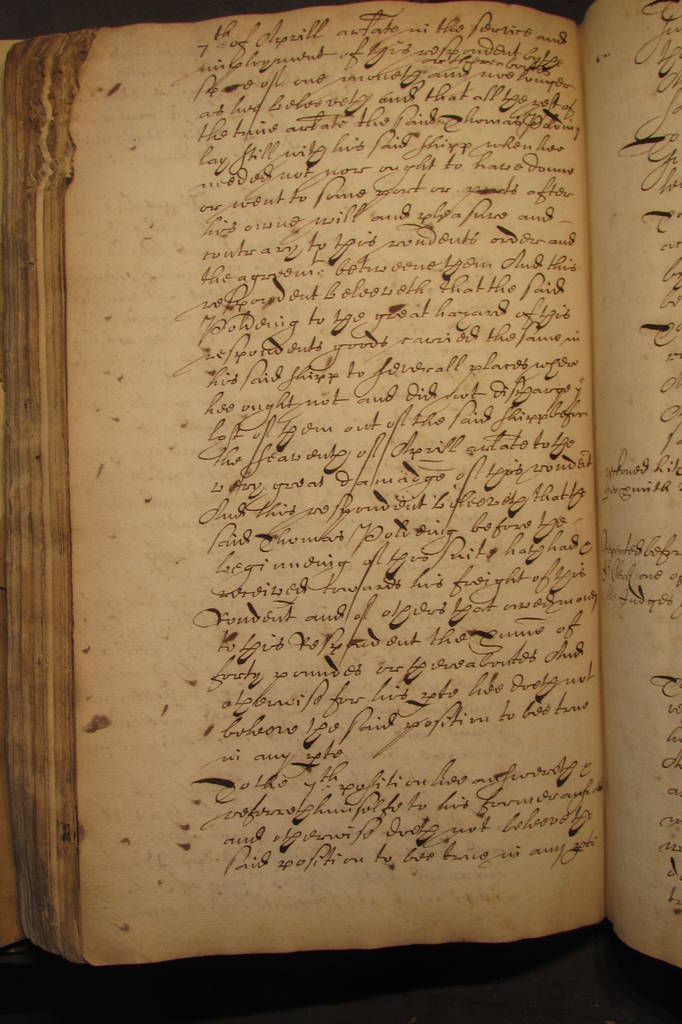 7th of Aprill arlate in the service and
imployment of this respondent by the
space of one moneth and noe longer
or thereaboutes
as hee beleeveth and that all the rest of
the time arlate the said Thomas Polding
lay still with his said shipp when hee
needed not nor ought to have donne
or went to some port or ports after
his owne will and pleasure and
contrary to this rondents order and
the agreemt betweene them And this
respondent beleeveth that the said
Poldeing to the great hazard of this
respondents goods carried the same in
his said shipp to severall places where
hee ought not and did not discharge ye
last of them out of the said shipp before
the seaventh of Aprill arlate to the
very great damadge of this rondent
And this respondent beleeveth that the
said Thomas Poldeing before the
beginneing of this suite hath had &
received towards his freight of this
Rondent and of others that owed money
to this Respondent the summe of
forty poundes or thereaboutes And
otherwise for his pte hee doth not
beleeve the said position to bee true
in any pte
To the 7th position hee answereth &
referreth himselfe to his former
and otherwise doth not beleeve the
said position to bee true in any pte